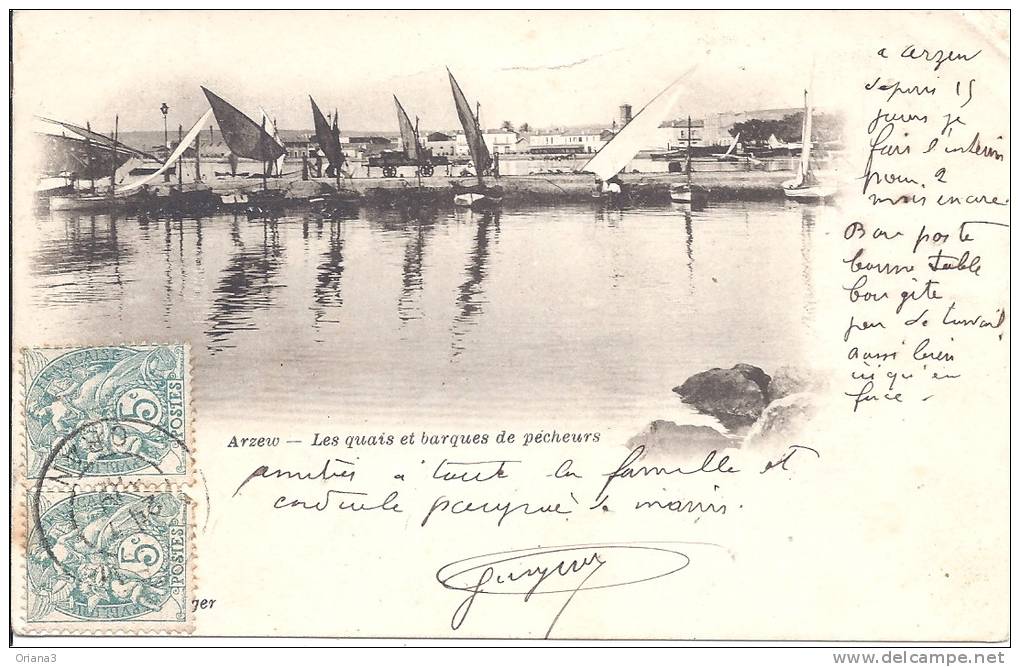 a arzew
depuis 15
jours je
fais l'intérim
pour 2
mois encore
Bon poste
bonne table
bon gîte
peu de travail
aussi bien
ici qu'en
face
Arzew — Les quais et barques de pêcheurs
amitiés à toute la famille et
cordiale poignée de mains.
FRANÇAISE
5c
POSTES
5c
POSTES
ger
Oriana3
www.delcampe.net